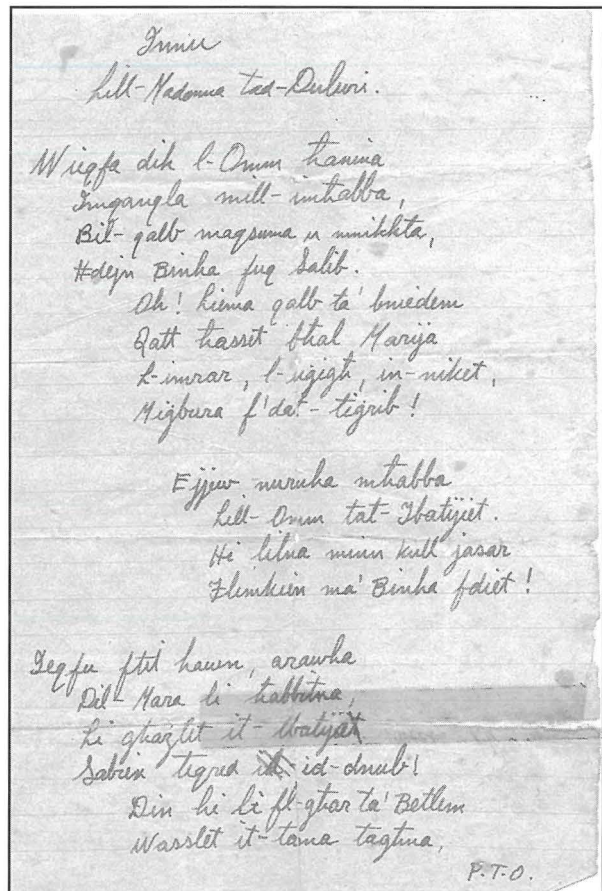 Innu
Lill-Madonna tad-Duluri.
Wieqfa dik l-Omm ħanina
Imqanqla mill-imħabba,
Bil-qalb maqsuma u mnikkta,
Ħdejn Binha fuq Salib.
Oh! liema qalb ta' bniedem
Qatt ħasset bħal Marija
L-imrar, l-uġigħ, in-niket,
Miġbura f'dat-tiġrib!
Ejjew nuruha mħabba
Lill-Omm tat-Tbatijiet.
Hi lilna minn kull jasar
Flimkien ma' Binha fdiet!
Ieqfu ftit hawn, arawha
Dil-Mara li ħabbitna,
Li għażlet it-tbatijiet
Sabiex teqred id-dnub!
Din hi li fl-għar ta' Betlem
Wasslet it-tama tagħna,
P.T.O.